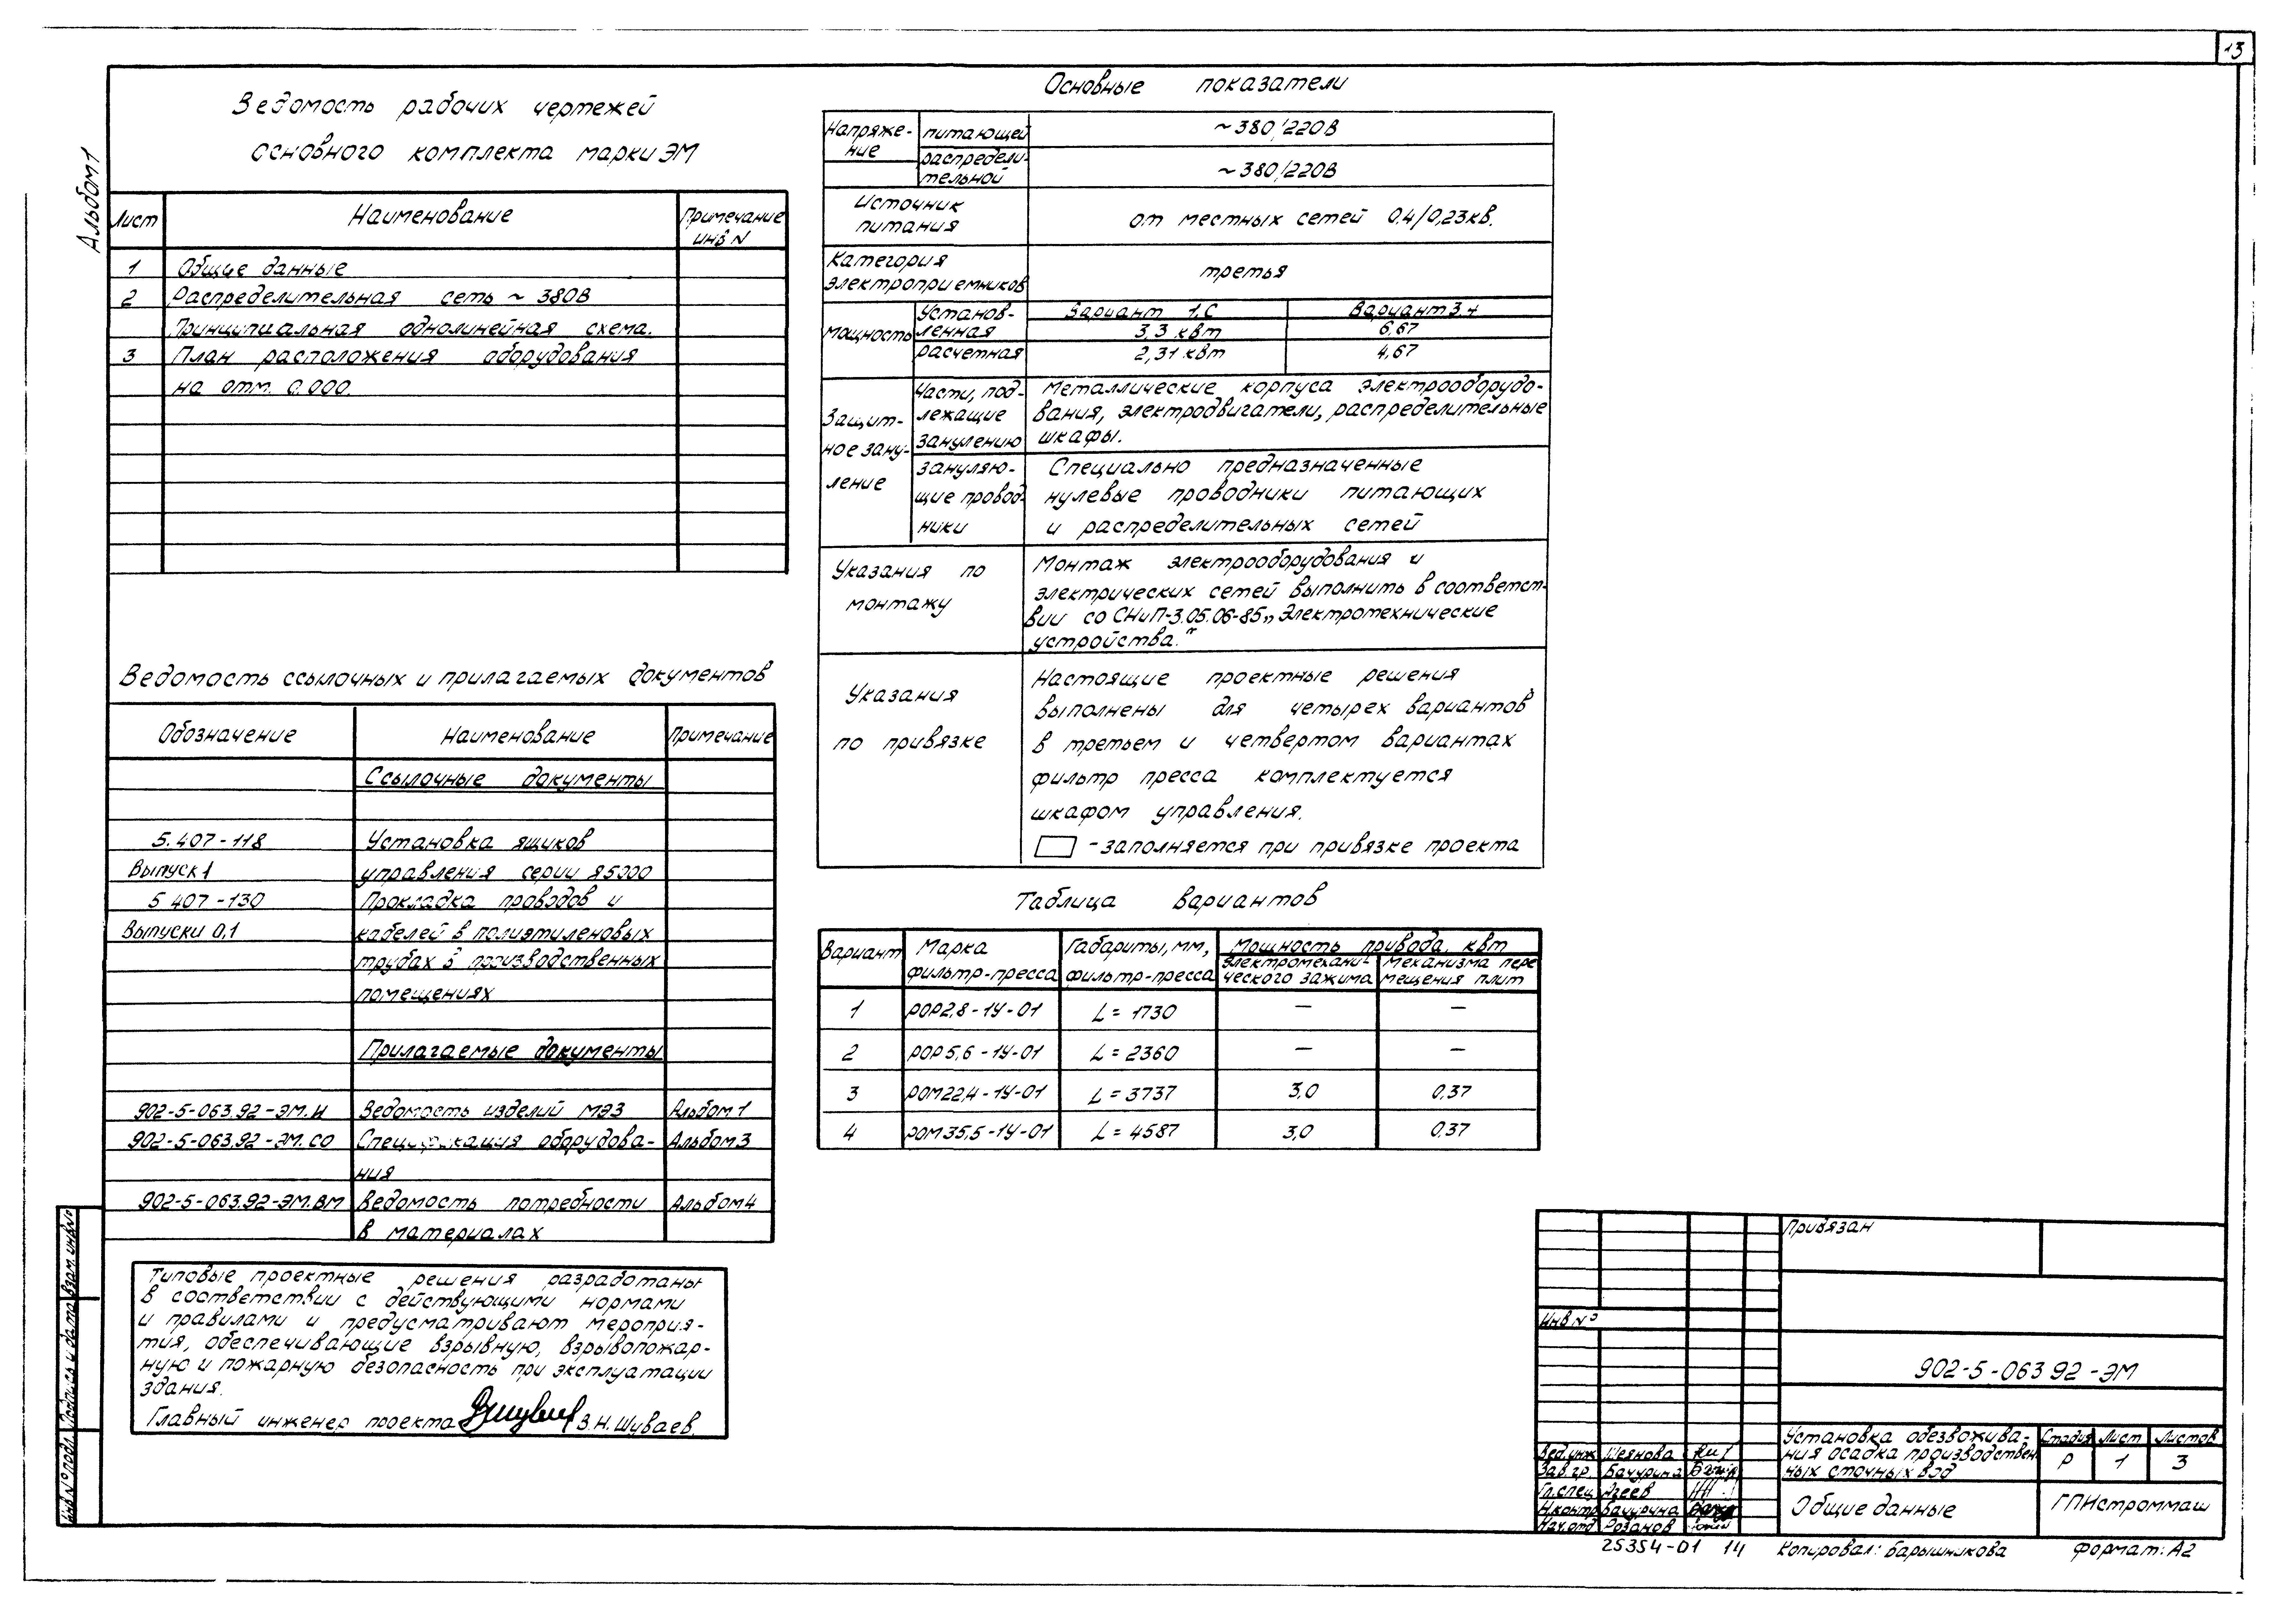 13
Альбом 1
Ведомость рабочих чертежей
основного комплекта марки ЭМ
Лист Наименование Примечание инв N
1 Общие данные
2 Распределительная сеть ~ 380В
Принципиальная однолинейная схема.
3 План расположения оборудования
на отм. 0.000.
Ведомость ссылочных и прилагаемых документов
Обозначение Наименование Примечание
Ссылочные документы
5.407-118 Установка ящиков
Выпуск 1 управления серии Я5000
5 407-130 Прокладка проводов и
Выпуски 0,1 кабелей в полиэтиленовых
трубах в производственных
помещениях
Прилагаемые документы
902-5-063.92-ЭМ.И Ведомость изделий МЭЗ Альбом 1
902-5-063.92-ЭМ.СО Спецификация оборудова- Альбом 3
ния
902-5-063.92-ЭМ.ВМ Ведомость потребности Альбом 4
в материалах
Типовые проектные решения разработаны
в соответствии с действующими нормами
и правилами и предусматривают мероприя-
тия, обеспечивающие взрывную, взрывопожар-
ную и пожарную безопасность при эксплуатации
здания.
Главный инженер проекта З.Н.Шуваев.
Основные показатели
Напряже-
ние
питающей ~380/220В
распредели-
тельной ~380/220В
Источник
питания от местных сетей 0.4/0,23кв.
Категория
электроприемников третья
Мощность
Установ-
ленная
Вариант 1,С Вариант 3.4
3,3 квт 6,67
расчетная 2,31 квт 4,67
Защит-
ное зану-
ление
Части, под-
лежащие
занулению
Металлические корпуса электрооборудо-
вания, электродвигатели, распределительные
шкафы.
зануляю-
щие провод-
ники
Специально предназначенные
нулевые проводники питающих
и распределительных сетей
Указания по
монтажу
Монтаж электрооборудования и
электрических сетей выполнить в соответст-
вии со СНиП-3.05.06-85 „Электротехнические
устройства."
Указания
по привязке
Настоящие проектные решения
выполнены для четырех вариантов
в третьем и четвертом вариантах
фильтр пресса комплектуется
шкафом управления.
- заполняется при привязке проекта
Таблица вариантов
Вариант Марка фильтр-пресса Габариты, мм, фильтр-пресса Мощность привода, квт
электромехани-
ческого зажима
механизма пере
мещения плит
1 РОР2,8-1У-01 L = 1730 — —
2 РОР5,6-1У-01 L = 2360 — —
3 РОМ22,4-1У-01 L = 3737 3,0 0,37
4 РОМ35,5-1У-01 L = 4587 3,0 0,37
Привязан
Инв №
902-5-063 92-ЭМ
Установка обезвожива-
ния осадка производствен
ных сточных вод
Стадия Лист Листов
Р 1 3
Общие данные
ГПИстроммаш
Вед.инж Шеянова
Зав.гр. Бачурина
Гл.спец Агеев
Н.контр Бачурина
Нач.отд Розанов
25354-01 14
Копировал: Барышникова
Формат: А2
Инв № подл. Подпись и дата Взам. инв №